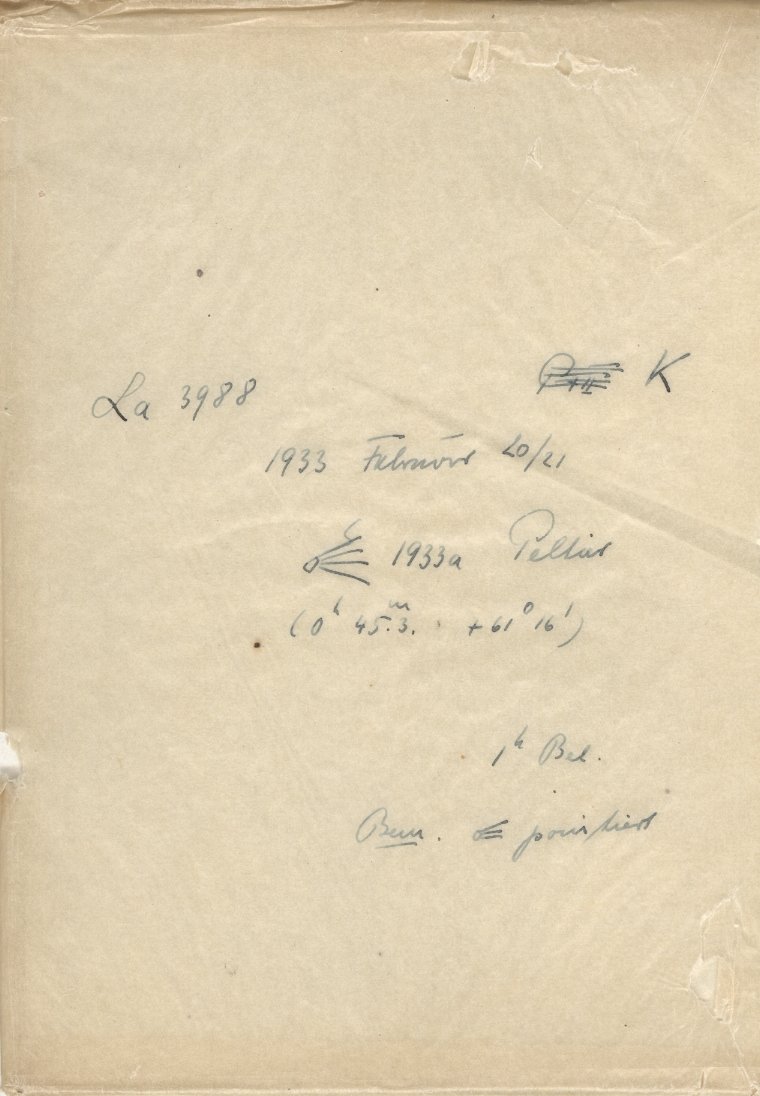 La 3988 K
1933 Februar 20/21
☄ 1933a Peltier
(0ʰ 45.ᵐ3. +61° 16')
1ʰ Bel.
Bem. ☄ pointiert